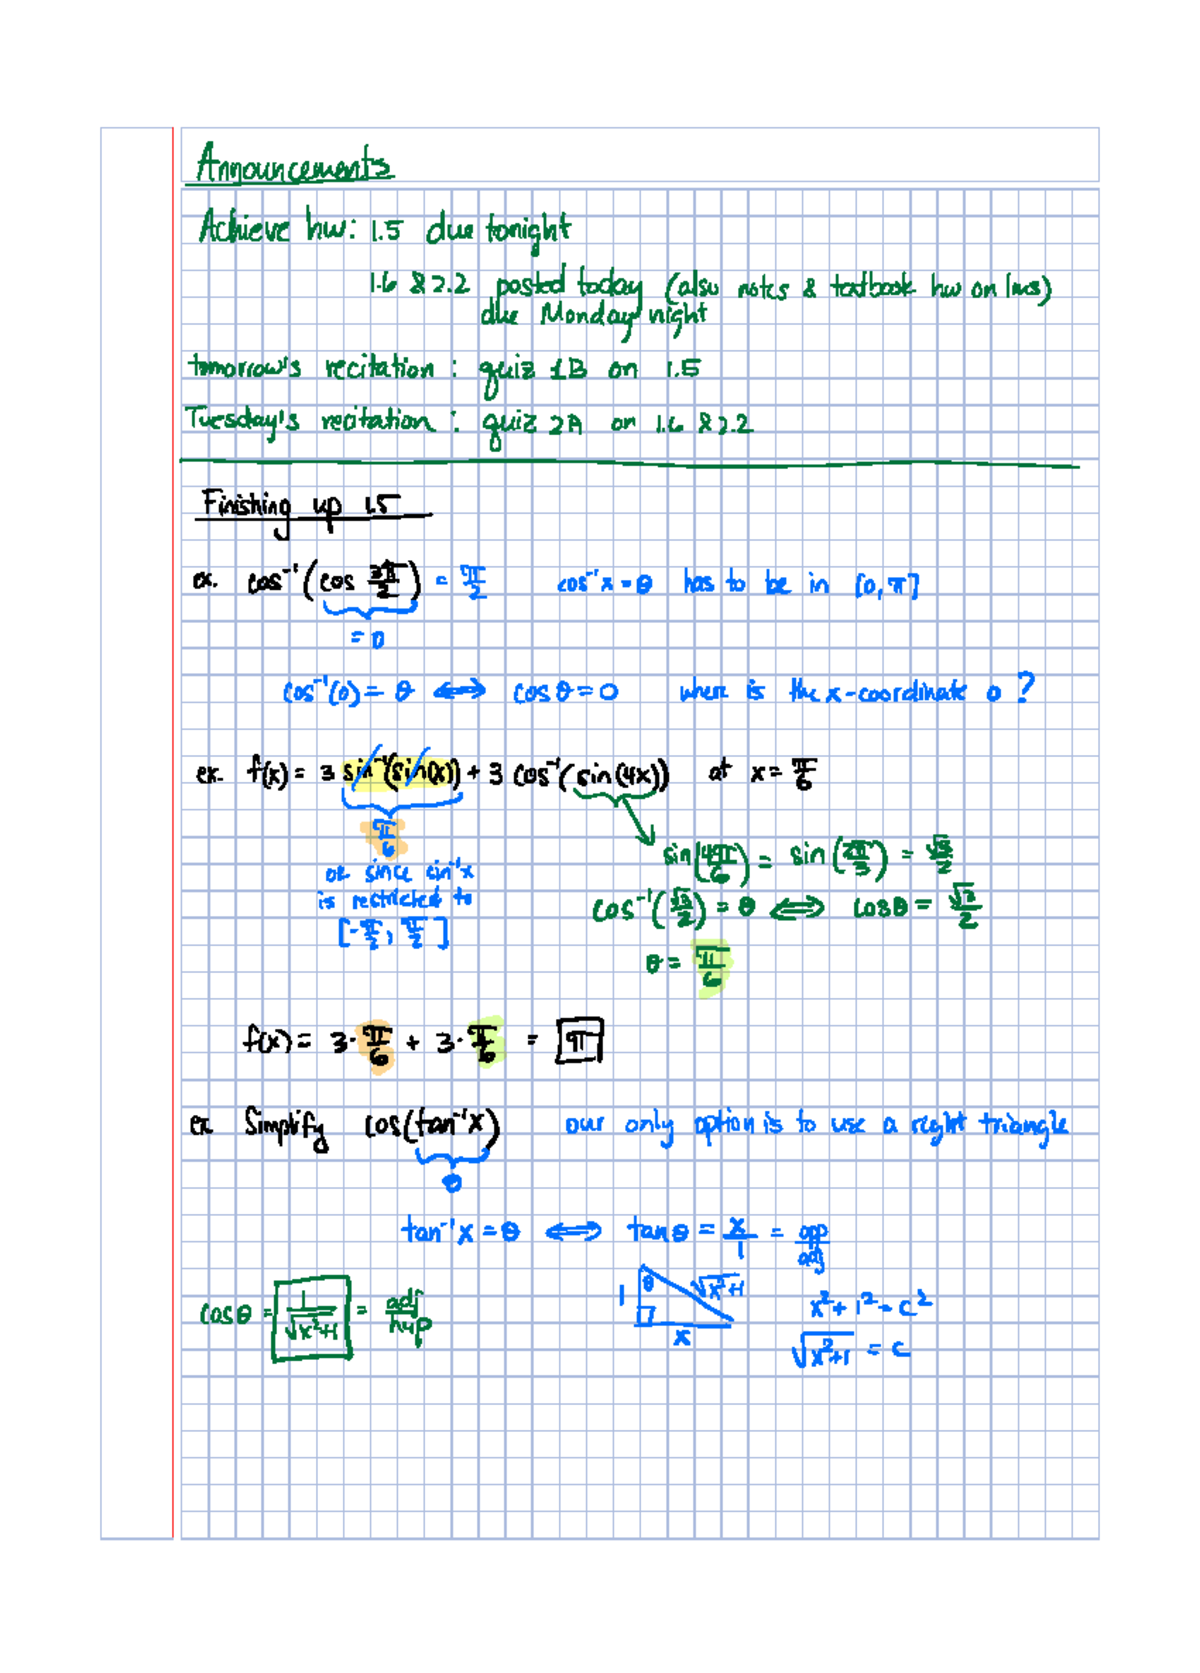 Announcements
Achieve hw: 1.5 due tonight
1.6 & 2.2 posted today (also notes & textbook hw on lms)
due Monday night
tomorrow's recitation : quiz 1B on 1.5
Tuesday's recitation : quiz 2A on 1.6 & 2.2
Finishing up 1.5
ex. cos⁻¹(cos 3π/2) = π/2 cos⁻¹x = θ has to be in [0, π]
= 0
cos⁻¹(0) = θ ⟺ cos θ = 0 where is the x-coordinate 0 ?
ex. f(x) = 3 sin⁻¹(sin(x)) + 3 cos⁻¹(sin(4x)) at x = π/6
π/6
sin(4π/6) = sin(2π/3) = √3/2
ok since sin⁻¹x
is restricted to
[-π/2, π/2]
cos⁻¹(√3/2) = θ ⟺ cos θ = √3/2
θ = π/6
f(x) = 3·π/6 + 3·π/6 = π
ex. Simplify cos(tan⁻¹x) our only option is to use a right triangle
θ
tan⁻¹x = θ ⟺ tan θ = x/1 = opp/adj
cos θ = 1/√x²+1 = adj/hyp
1 θ √x²+1
x
x² + 1² = c²
√x²+1 = c